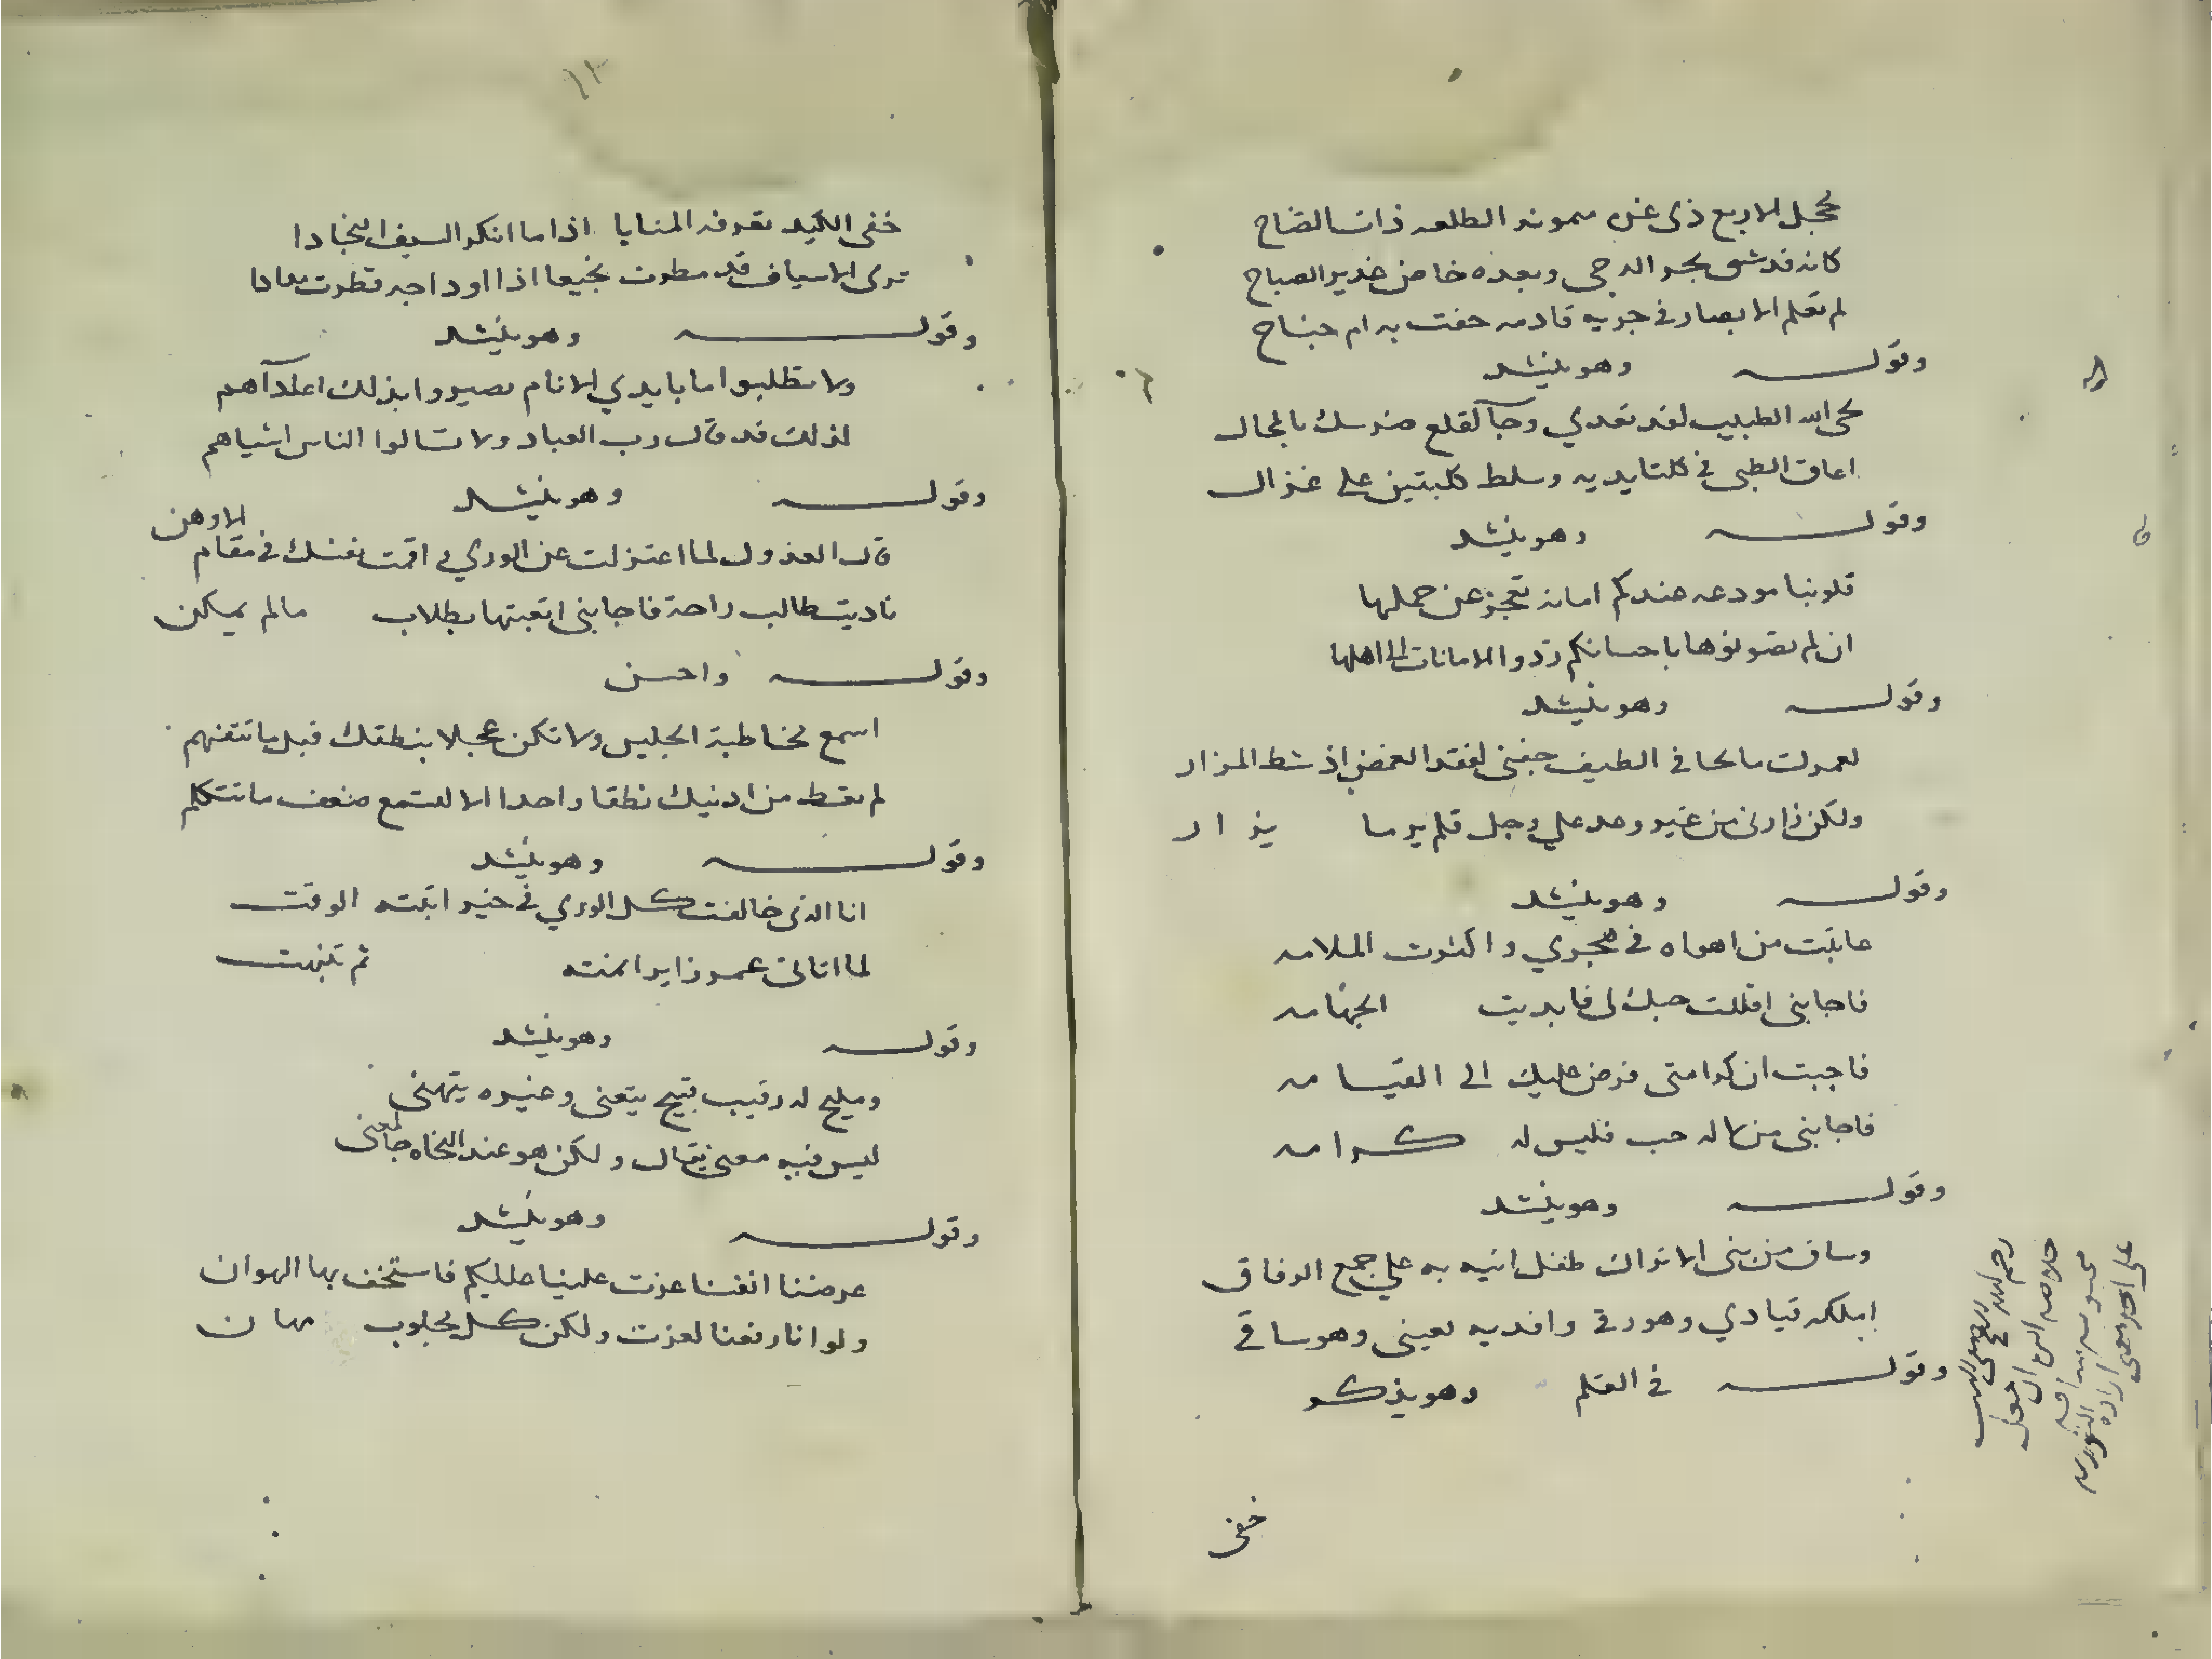 محجل الاربع ذى غره ميمونه الطلعه ذات اتضاح
كانه قد شق بحر الدجى وبعده خاض غدير الصباح
لم تعلم الابصار فى جريه قادمه حفت به ام جناح
وقولـــه وهو ينشد
لحى الله الطبيب لقد تعدي وجآ لقلع ضرسك بالمحال
اعاق الظبى فى كلتا يديه وسلط كلبتين على غزال
وقولـــه وهو ينشد
قلوبنا مودعه عندكم امانه تعجز عن حملها
ان لم تصونوها باحسانكم ردوا الامانات الى اهلها
وقولـــه وهو ينشد
لعمرك ما تجافى الطيف جفنى لفقد الغمض اذ شط المزار
ولكن زارنى من غير وعد على وجل فلم ير ما يزار
وقولـــه وهو ينشد
عاتبت من اهواه فى هجري واكثرت الملامه
فاجابنى اقللت حبك لى فابديت الجهامه
فاجبت ان كرامتى فرض عليك الى القيامه
فاجابنى من ماله حب فليس له كرامه
وقولـــه وهو ينشد
وساق من بنى الاتراك طفل اتيه به على جمع الرفاق
املكه قيادي وهو رقى وافديه بعينى وهو ساقى
وقولـــه فى القلم وهو يذكر
خفى
١٢
خفى الكيد تعرفه المنايا اذا ما انكر السيف النجادا
ترى الاسياف قد مطرت نجيعا اذا اوداجه قطرت مدادا
وقولـــه وهو ينشد
ولا تطلبوا ما بايدي الانام تصيروا بذلك اعدآهم
لذلك قد قال رب العباد ولا تسالوا الناس اشياهم
وقولـــه وهو ينشد
قال العذول لما اعتزلت عن الوري واقمت نفسك فى مقام الاوهن
ناديت طالب راحة فاجابنى اتعبتها بطلاب مالم يمكن
وقولـــه واحسن
اسمع مخاطبة الجليس ولا تكن عجلا بنطقك قبل ما تتفهم
لم تعط من اذنيك نطقا واحدا الا لتسمع ضعف ما تتكلم
وقولـــه وهو ينشد
انا الذى خالفت كل الوري فى خير اثبته الوقت
لما اتانى عمر زايرا نمت ثم تنبهت
وقولـــه وهو ينشد
ومليح له رقيب قبيح يتعنى وغيره يتهنى
ليس فيه معنى يقال ولكن هو عند النحاه جا لمعنى
وقولـــه وهو ينشد
عرضنا انفسا عزت علينا عليكم فاستخف بها الهوان
ولو انا رفعنا لعزت ولكن كل مجلوب مهان